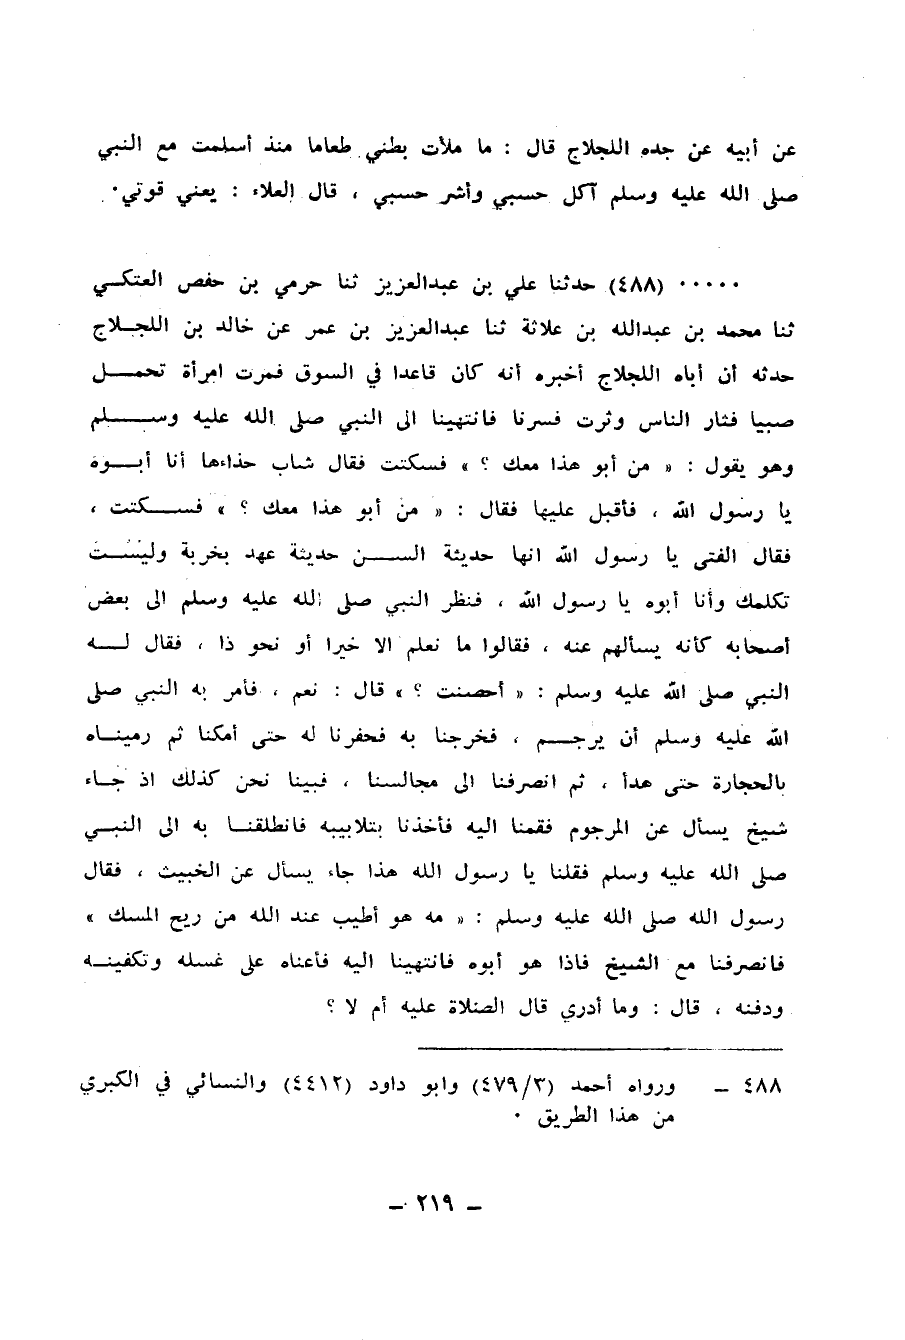 عن أبيه عن جده اللجلاج قال : ما ملأت بطني طعاما منذ أسلمت مع النبي
صلى الله عليه وسلم آكل حسبي وأشر حسبي ، قال العلاء : يعني قوتي .
..... (٤٨٨) حدثنا علي بن عبدالعزيز ثنا حرمي بن حفص العتكـي
ثنا محمد بن عبدالله بن علاثة ثنا عبدالعزيز بن عمر عن خالد بن اللجـلاج
حدثه أن أباه اللجلاج أخبره أنه كان قاعدا في السوق فمرت امرأة تحمـــل
صبيا فثار الناس وثرت فسرنا فانتهينا الى النبي صلى الله عليه وســـلم
وهو يقول : « من أبو هذا معك ؟ » فسكتت فقال شاب حذاءها أنا أبـــوه
يا رسول الله ، فأقبل عليها فقال : « من أبو هذا معك ؟ » فســـكتت ،
فقال الفتى يا رسول الله انها حديثة الســـن حديثة عهد بخربة وليســـت
تكلمك وأنا أبوه يا رسول الله ، فنظر النبي صلى الله عليه وسلم الى بعض
أصحابه كأنه يسألهم عنه ، فقالوا ما نعلم الا خيرا أو نحو ذا ، فقال لـــه
النبي صلى الله عليه وسلم : « أحصنت ؟ » قال : نعم ، فأمر به النبي صلى
الله عليه وسلم أن يرجـــم ، فخرجنا به فحفرنا له حتى أمكنا ثم رمينـاه
بالحجارة حتى هدأ ، ثم انصرفنا الى مجالسنا ، فبينا نحن كذلك اذ جـاء
شيخ يسأل عن المرجوم فقمنا اليه فأخذنا بتلابيبه فانطلقنـا به الى النبـي
صلى الله عليه وسلم فقلنا يا رسول الله هذا جاء يسأل عن الخبيث ، فقال
رسول الله صلى الله عليه وسلم : « مه هو أطيب عند الله من ريح المسك »
فانصرفنا مع الشيخ فاذا هو أبوه فانتهينا اليه فأعناه على غسله وتكفينـه
ودفنه ، قال : وما أدري قال الصلاة عليه أم لا ؟
٤٨٨ – ورواه أحمد (٤٧٩/٣) وابو داود (٤٤١٢) والنسائي في الكبري
من هذا الطريق .
– ٢١٩ –